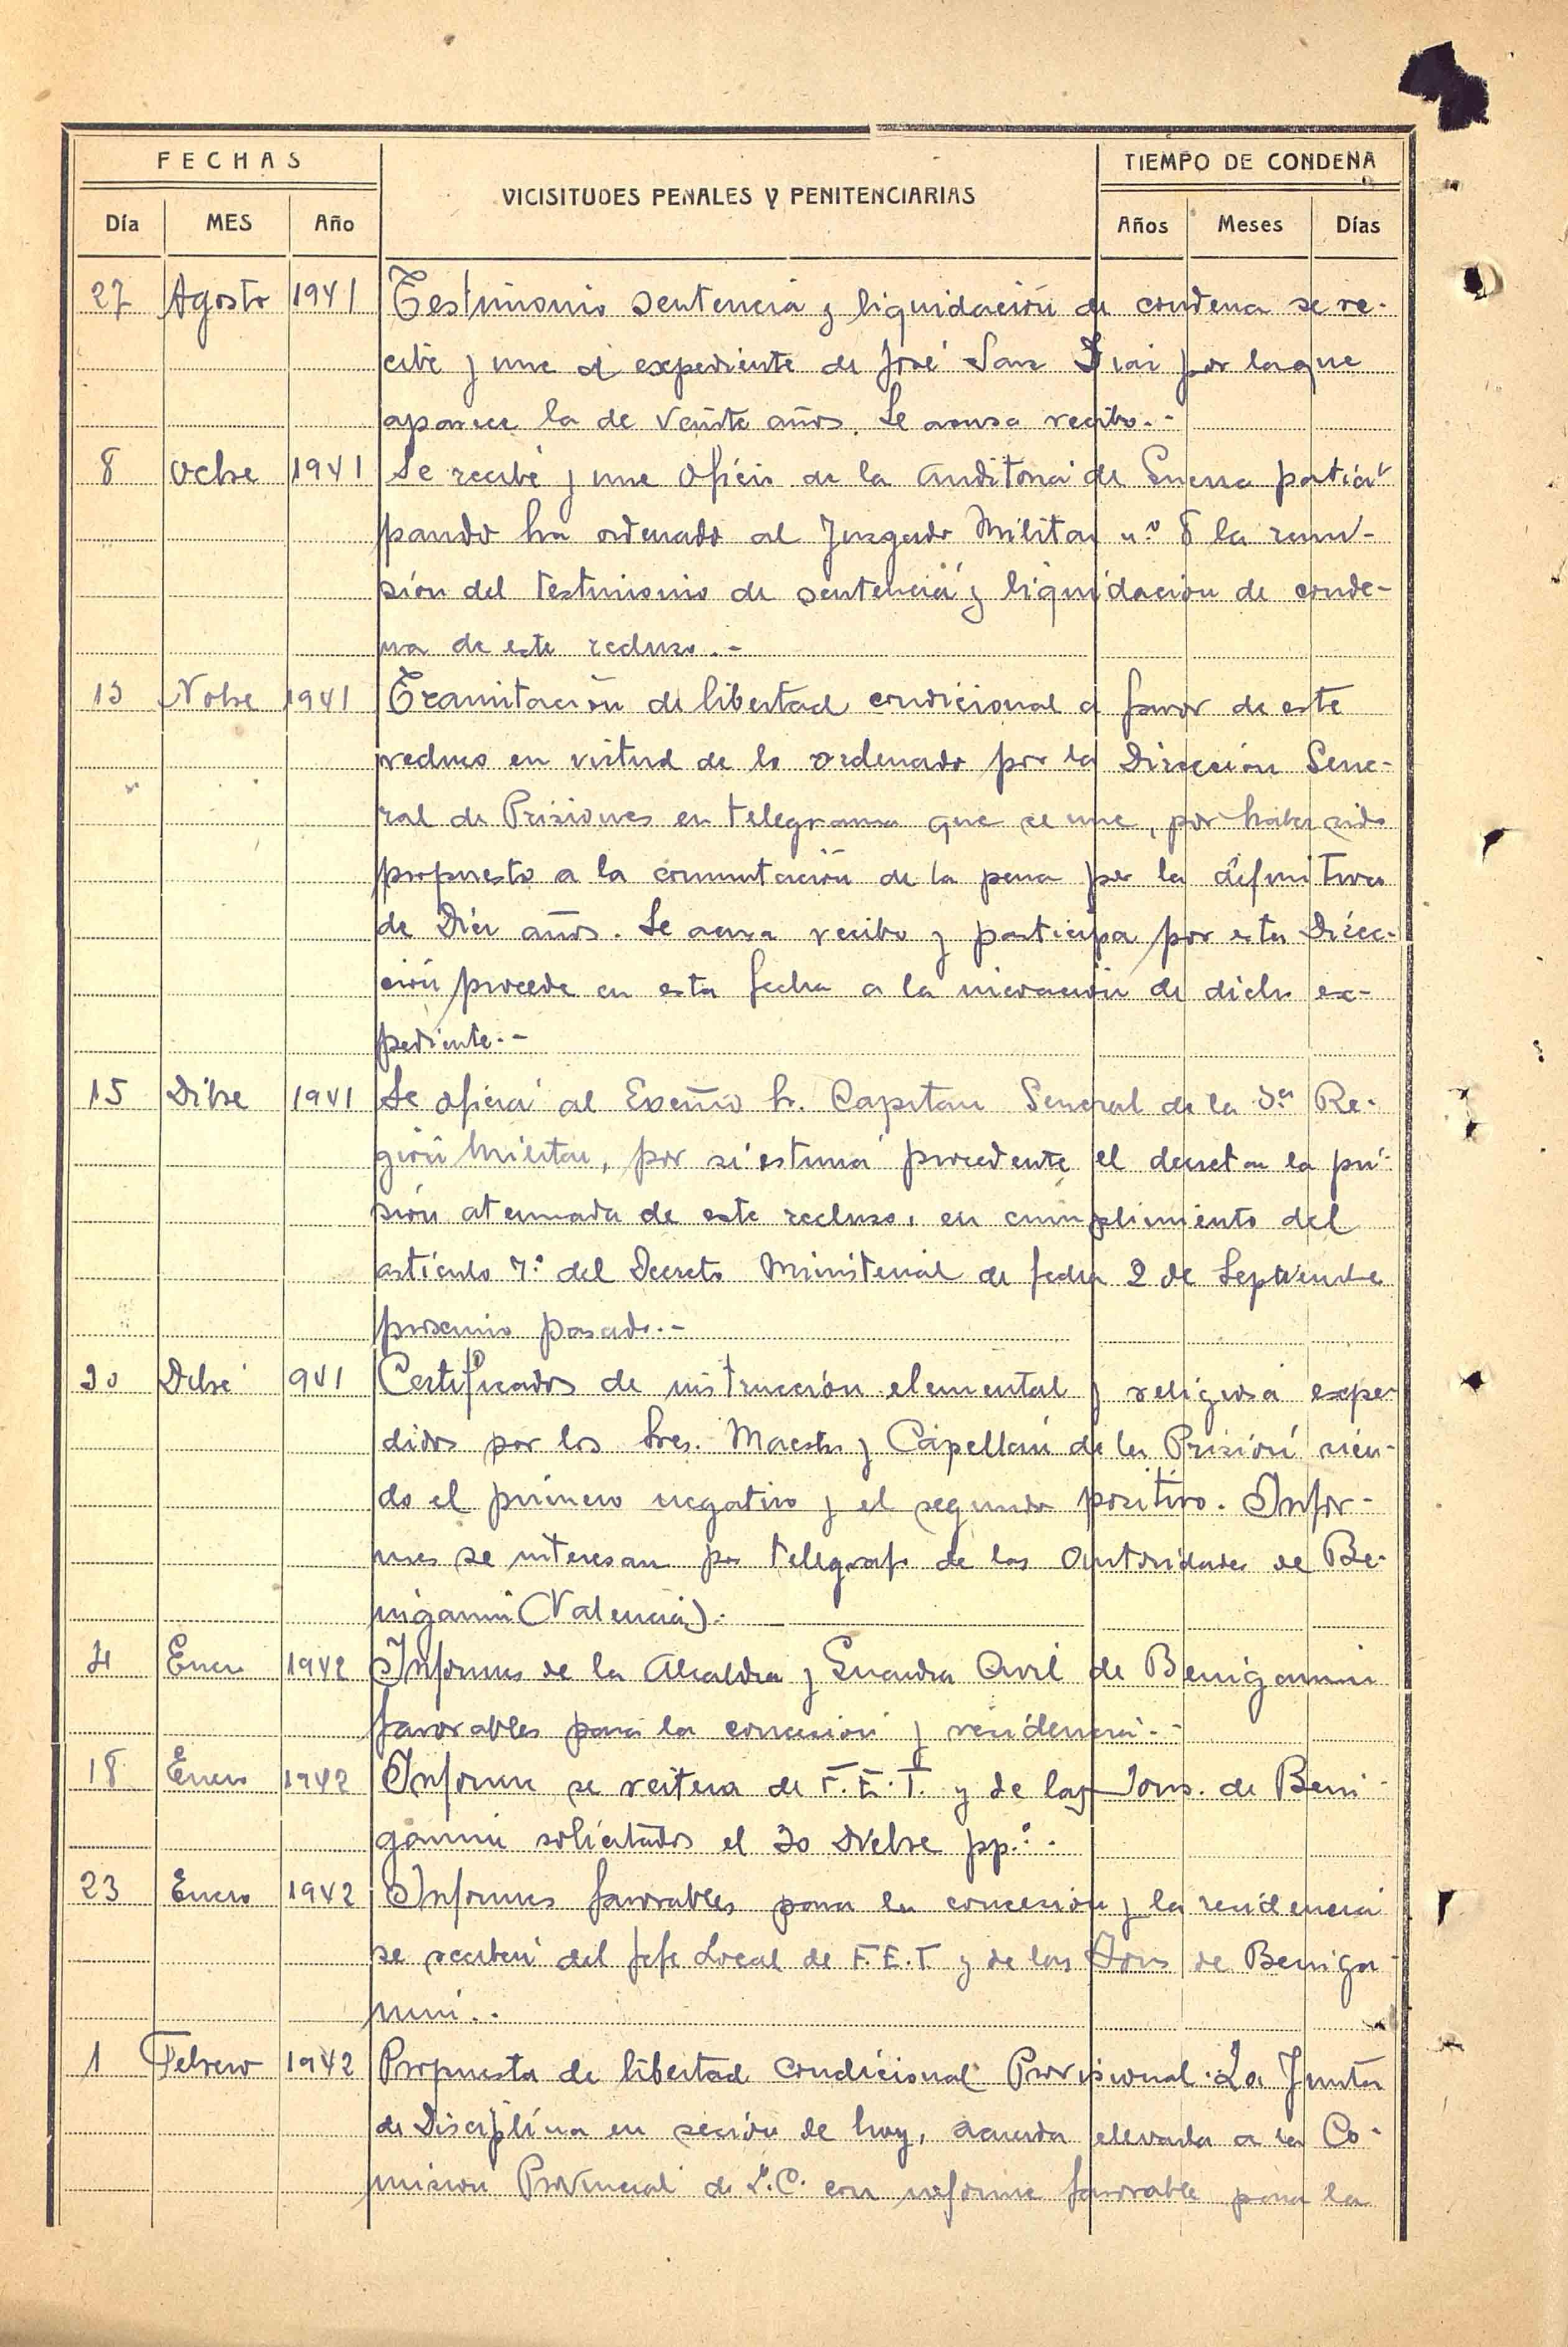 FECHAS
VICISITUDES PENALES Y PENITENCIARIAS
TIEMPO DE CONDENA
Día MES Año
Años Meses Días
27 Agosto 1941 Testimonio sentencia y liquidación de condena se re-
cibe y une al expediente de José Sanz por la que
aparece la de veinte años. Se acusa recibo.-
8 Octbre 1941 Se recibe y une oficio de la Auditoria de Guerra partici-
pando ha ordenado al Juzgado Militar nº 8 la remi-
sión del testimonio de sentencia y liquidación de conde-
na de este recluso.-
13 Nobre 1941 Tramitación de libertad condicional a favor de este
recluso en virtud de lo ordenado por la Dirección Gene-
ral de Prisiones en telegrama que se une, por haber sido
propuesto a la conmutación de la pena por la definitiva
de Diez años. Se acusa recibo y participa por esta Direc-
ción procede en esta fecha a la incoación de dicho ex-
pediente.-
15 Dibre 1941 Se oficia al Excmo Sr. Capitan General de la 3ª Re-
gión Militar, por si estima procedente el decretar la pri-
sión atenuada de este recluso, en cumplimiento del
artículo 7º del Decreto Ministerial de fecha 2 de Septiembre
proximo pasado.-
30 Dcbre 941 Certificados de instrucción elemental y religiosa expe-
didos por los Sres. Maestro y Capellán de la Prisión sien-
do el primero negativo y el segundo positivo. Infor-
mes se interesan por telegrafo de las Autoridades de Be-
nigamin (Valencia).-
4 Enero 1942 Informes de la Alcaldia y Guardia Civil de Benigamin
favorables para la concesión y residencia.-
18 Enero 1942 Informe se reitera de F.E.T. y de las Jons. de Beni-
gamin solicitados el 30 Dicbre pp.º.-
23 Enero 1942 Informes favorables para la concesión y la residencia
se reciben del Jefe Local de F.E.T y de las Jons de Beniga-
min.-
1 Febrero 1942 Propuesta de libertad condicional Provisional. La Junta
de Disciplina en sesión de hoy, acuerda elevarla a la Co-
mision Provincial de L.C. con informe favorable para la